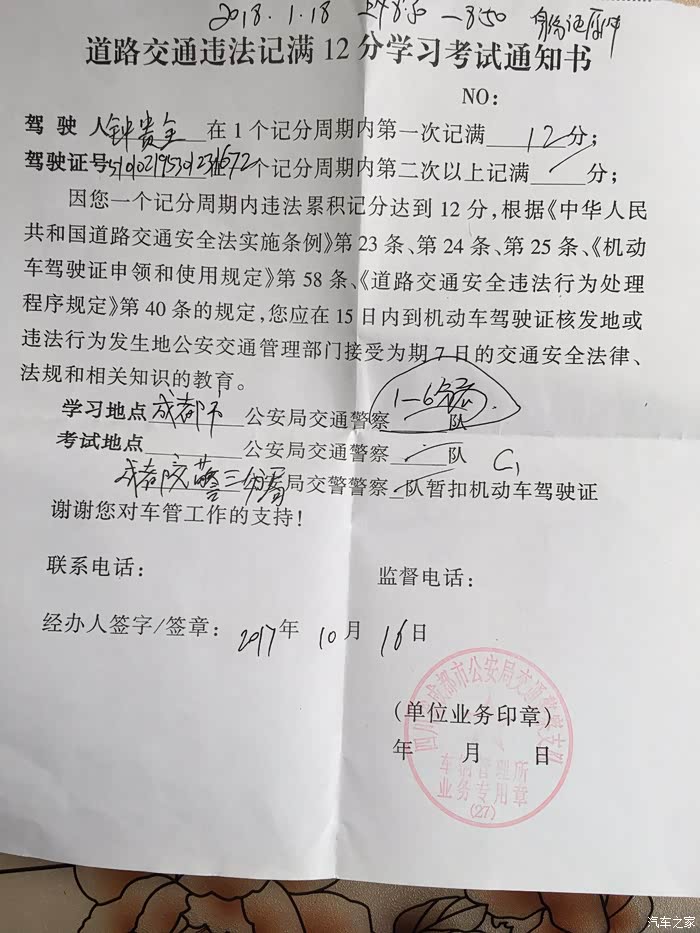 2018.1.18 上午8:30 —8:50 身份证原件
道路交通违法记满12分学习考试通知书
NO：
驾驶人钟贵全在1个记分周期内第一次记满 12分；
驾驶证号 个记分周期内第二次以上记满 分；
因您一个记分周期内违法累积记分达到12分，根据《中华人民
共和国道路交通安全法实施条例》第23条、第24条、第25条、《机动
车驾驶证申领和使用规定》第58条、《道路交通安全违法行为处理
程序规定》第40条的规定，您应在15日内到机动车驾驶证核发地或
违法行为发生地公安交通管理部门接受为期7日的交通安全法律、
法规和相关知识的教育。
学习地点成都市公安局交通警察 1—6 队
考试地点 公安局交通警察 队 C1
成都 三分局局交警警察 队暂扣机动车驾驶证
谢谢您对车管工作的支持！
联系电话： 监督电话：
经办人签字/签章：2017年10月16日
四川省成都市公安局交通警察支队
（单位业务印章）
年 月 日
车辆管理所
业务专用章
(27)
汽车之家